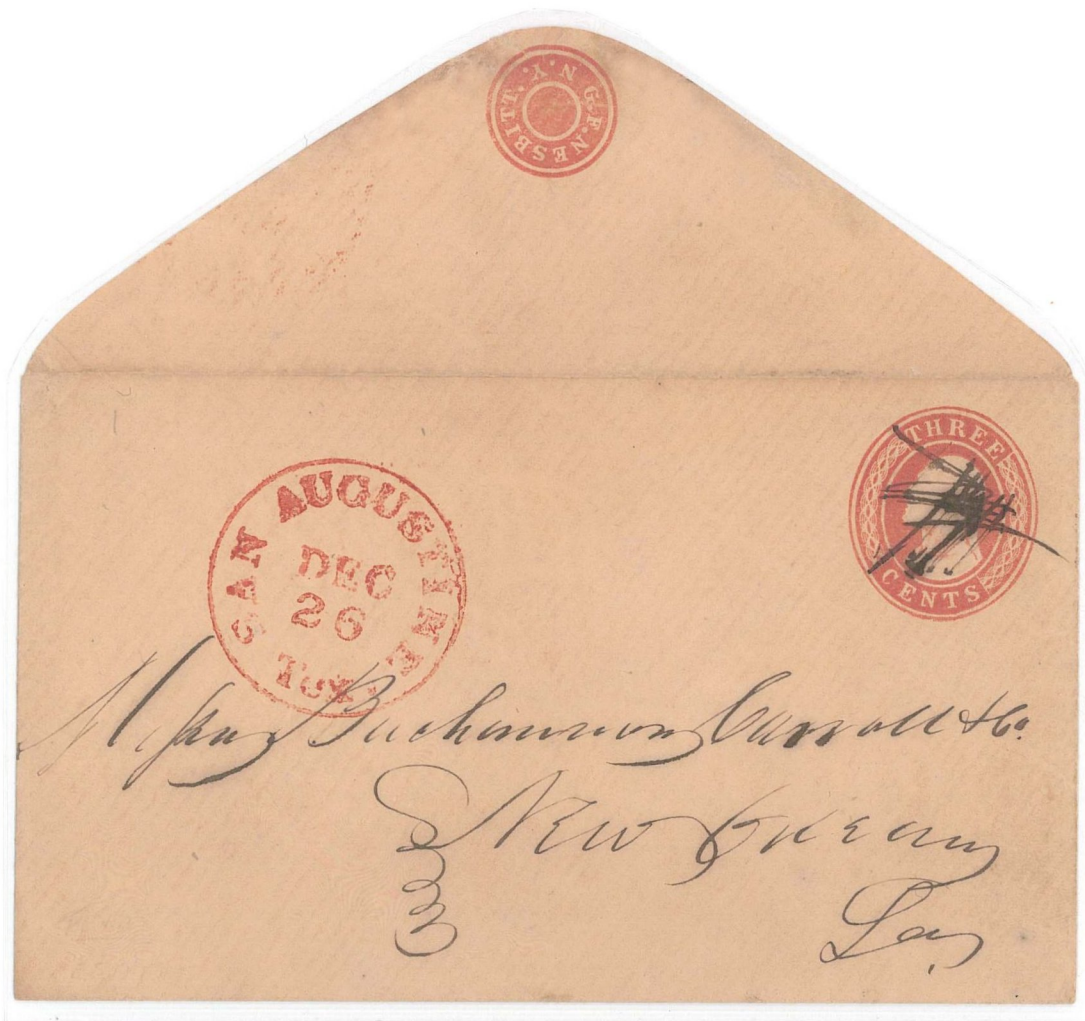 G.F. NESBITT. N.Y.
THREE
CENTS
SAN AUGUSTINE
DEC
26
Tex.
Messrs Buchannon Carroll & Co.
New Orleans
La,